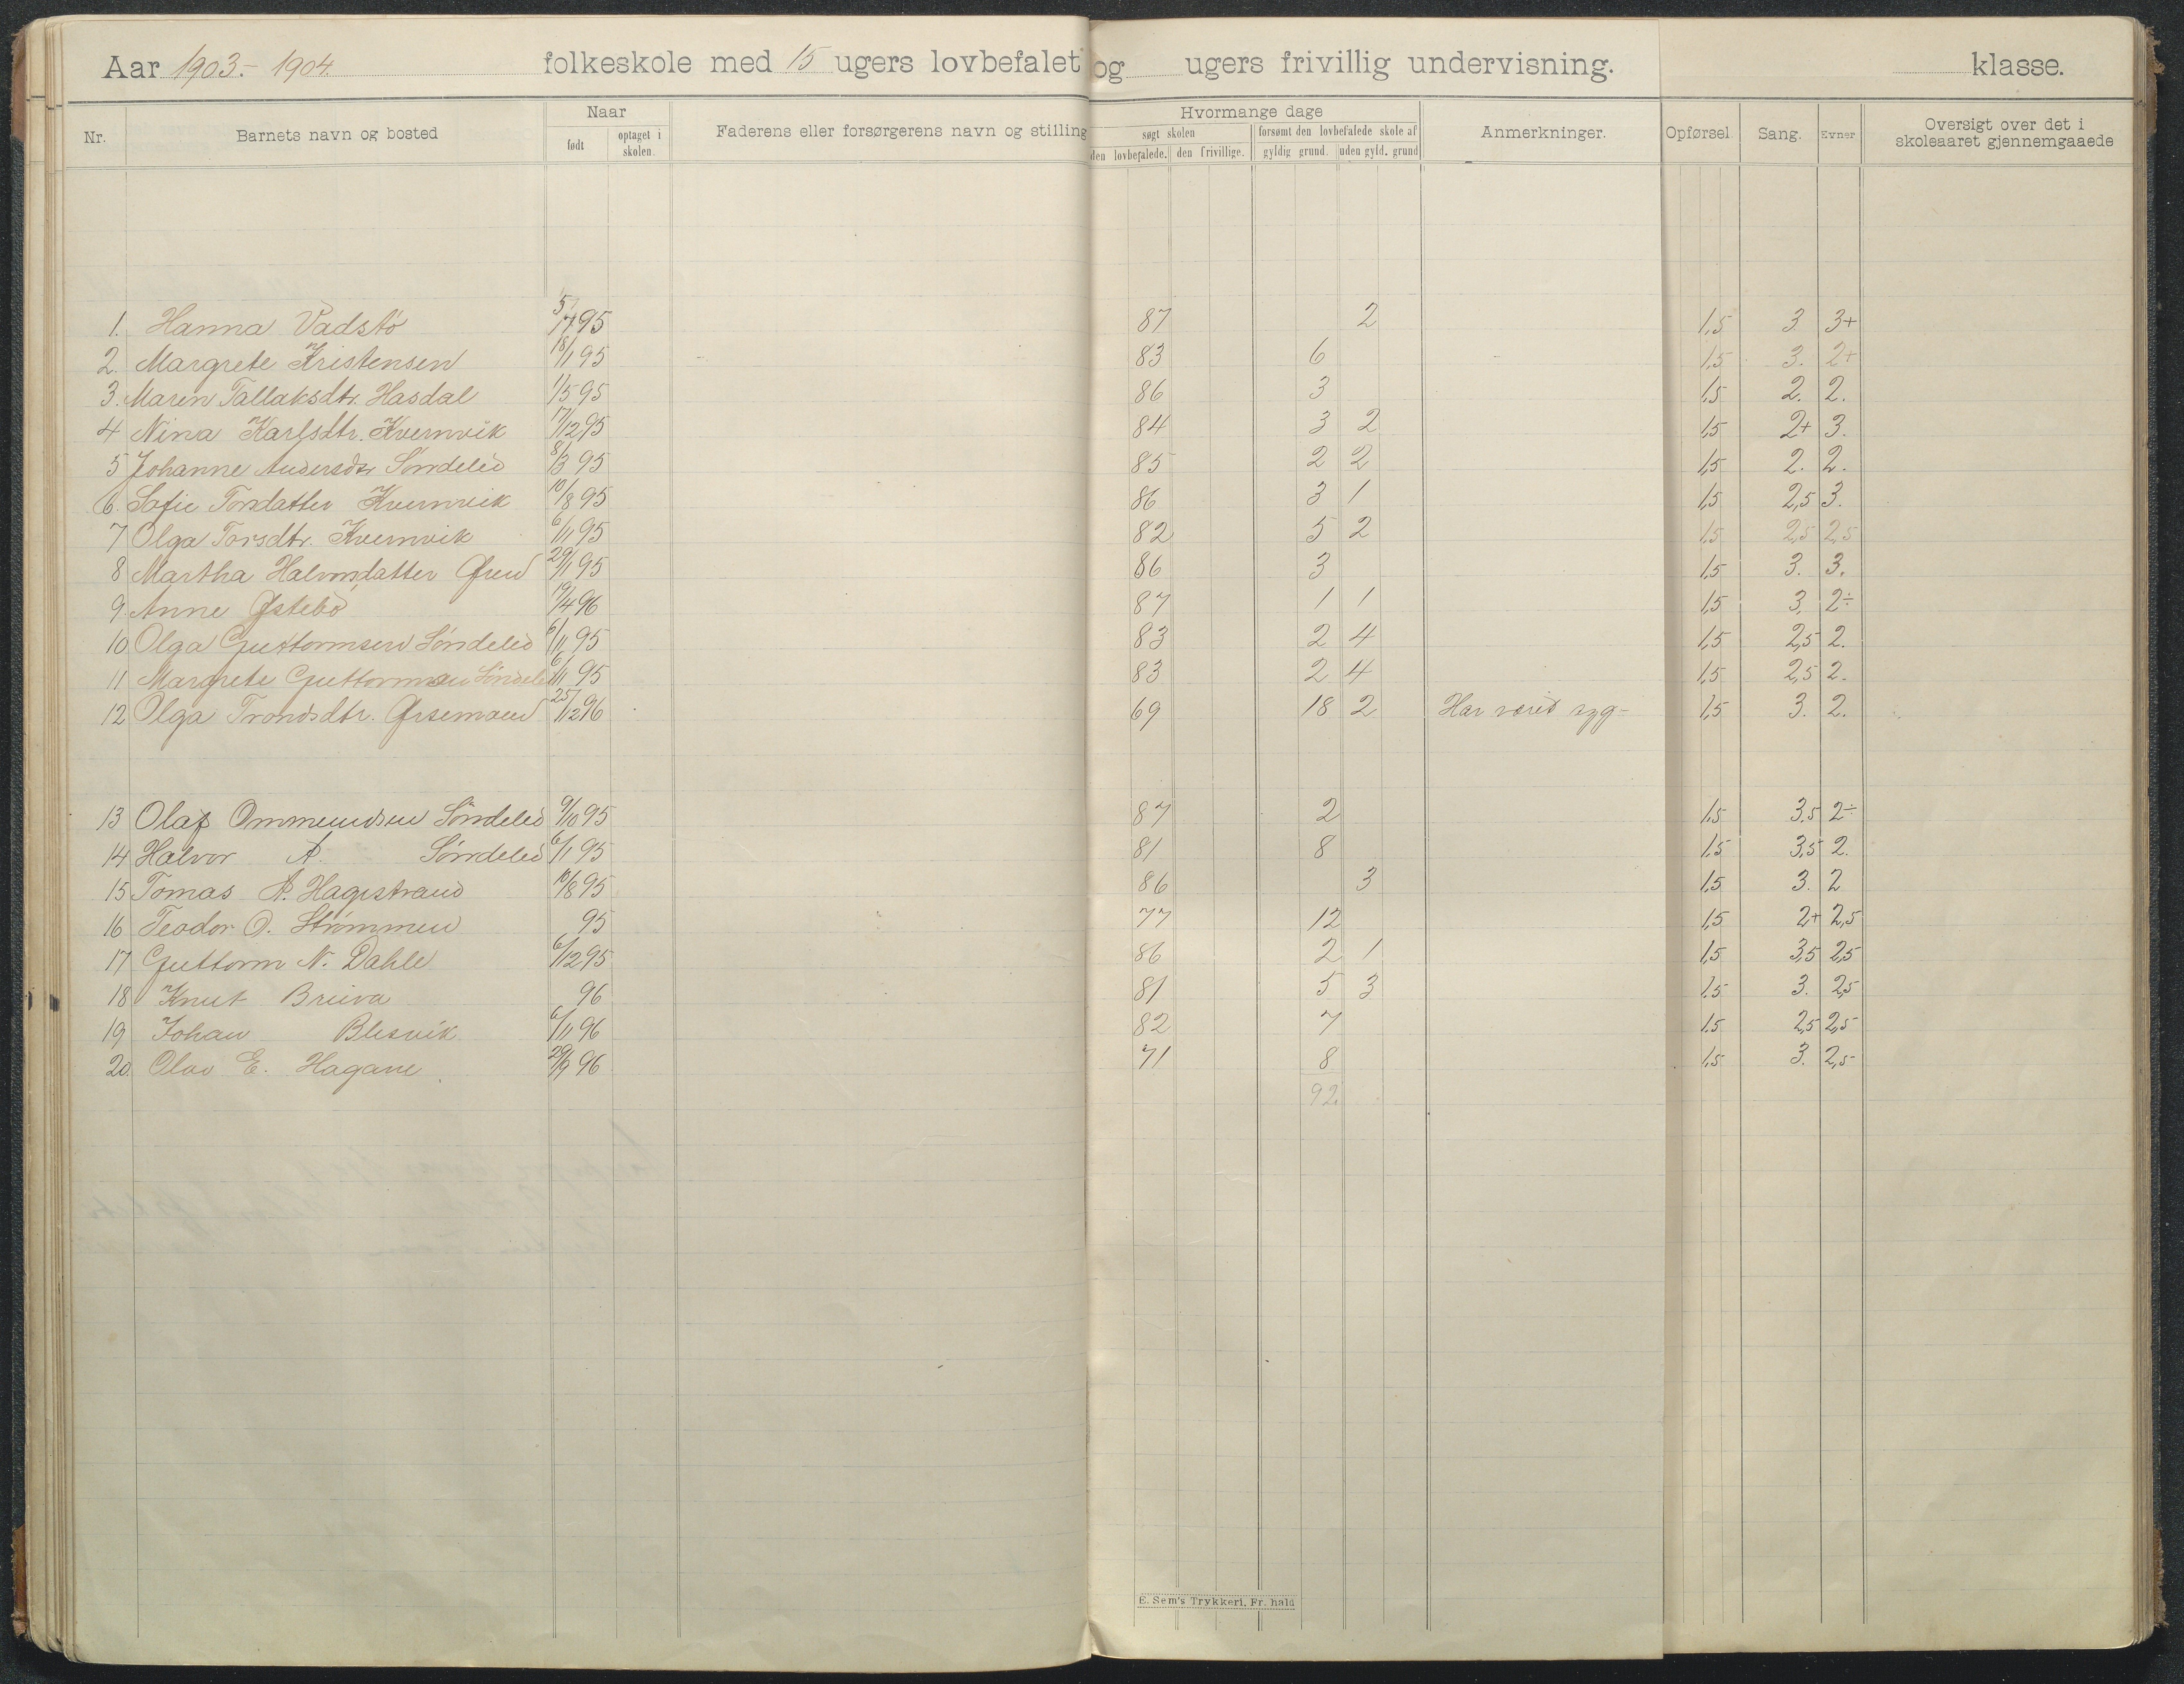 Aar 1903.- 1904. folkeskole med 15 ugers lovbefalet og ugers frivillig undervisning. klasse.
Nr. Barnets navn og bosted Naar født optaget i skolen. Faderens eller forsørgerens navn og stilling Hvormange dage søgt skolen den lovbefalede. den frivillige. forsømt den lovbefalede skole af gyldig grund. uden gyld. grund Anmerkninger. Opførsel. Sang. Evner Oversigt over det i skoleaaret gjennemgaaede
1. Hanna Vadstø 5/7 95 87 2 1,5 3 3+
2. Margrete Kristensen 18/1 95 83 6 1,5 3. 2+
3. Maren Tallaksdtr. Hasdal 1/5 95 86 3 1,5 2. 2.
4 Nina Karlsdtr. Kvernvik 17/12 95 84 3 2 1,5 2+ 3.
5 Johanne Andersdtr Søndeled 8/3 95 85 2 2 1,5 2. 2.
6. Sofie Torsdatter Kvernvik 10/8 95 86 3 1 1,5 2,5 3.
7 Olga Torsdtr. Kvernvik 6/11 95 82 5 2 1,5 2,5 2,5
8 Martha Halvorsdatter 29/1 95 86 3 1,5 3. 3.
9. Anne Østebø 19/4 96 87 1 1 1,5 3. 2÷
10 Olga Guttormsen Søndeled 6/11 95 83 2 4 1,5 2,5 2.
11 Margrete Guttormsen Søndele 6/11 95 83 2 4 1,5 2,5 2.
12 Olga Trondsdtr. 25/12 96 69 18 2 Har været syg- 1,5 3. 2.
13 Olaf Ommundsen Søndeled 9/10 95 87 2 1,5 3,5 2÷
14 Halvor A. Søndeled 6/1 95 81 8 1,5 3,5 2.
15 Tomas A. Hagestrand 10/8 95 86 3 1,5 3. 2
16 Teodor O. Strømmen 95 77 12 1,5 2+ 2,5
17 Guttorm N. Dahle 6/12 95 86 2 1 1,5 3,5 2,5
18 Knut 96 81 5 3 1,5 3. 2,5
19 Johan Blesvik 6/11 96 82 7 1,5 2,5 2,5
20. Olav E. Hagane 29/9 96 71 8 1,5 3. 2,5
92.
E. Sem's Trykkeri, Fr. hald